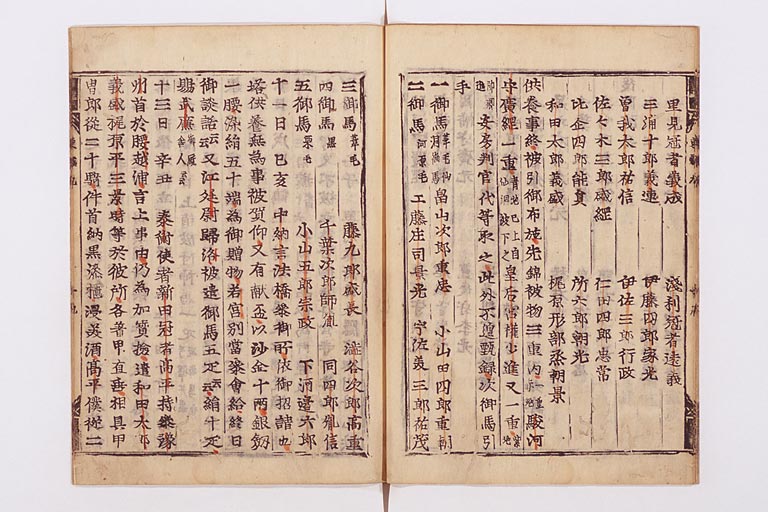 里見冠者義成 淺利冠者遠義
三浦十郎義連 伊藤四郎家光
曾我太郎祐信 伊佐三郎行政
佐々木三郎盛綱 仁田四郎忠常
比企四郎能員 所六郎朝光
和田太郎義盛 梶原形部丞朝景
供養事終被引御布施先錦被物三重内 駿河
守廣綱一重 皇后宮權少進又一重
進 安房判官代等取之此外不遑甄録次御馬引
手
一御馬葦毛仙洞御馬 畠山次郎重忠 小山田四郎重朝
二御馬河原毛 工藤庄司景光 宇佐美三郎祐茂
三御馬葦毛 藤九郎盛長 澁谷次郎高重
四御馬黒 千葉次郎師胤 同四郎胤信
五御馬栗毛 小山五郎宗政 下河邊六郎
十一日己亥 中納言法橋參御所依御招請也
塔供養無為事被賀仰又有献盃以沙金十兩銀釼
一腰染絹五十端為御贈物若宮別當參會給終日
御談話云云又江廷尉歸洛被遣御馬五疋云云絹十疋
賜武廉舎人云云
十三日辛丑 泰衡使者新田冠者高平持參豫
州首於腰越浦言上事由仍為加實撿遣和田太郎
義盛梶原平三景時等於彼所各著甲直垂相具甲
冑郎從二十騎件首納黒漆櫃浸美酒高平僕從二